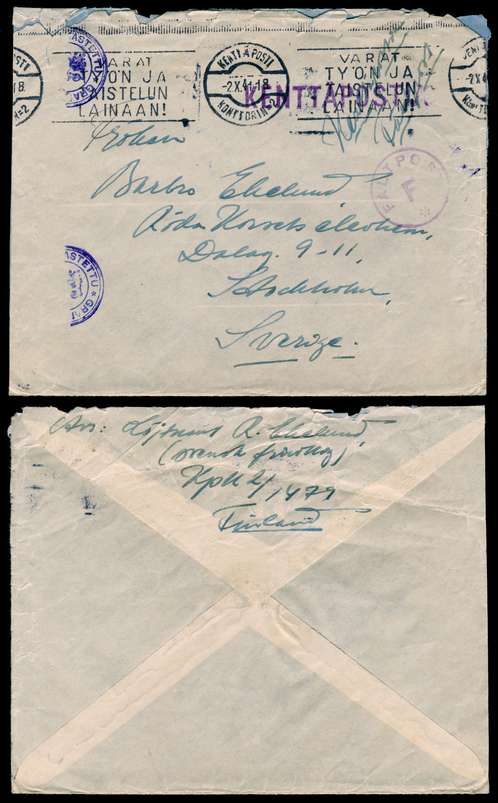 VARAT
TYÖN JA
TAISTELUN
LAINAAN!
KENTTÄPOSTI
-2.X.41.18
KONTTORI N:
VARAT
TYÖN JA
TAISTELUN
LAINAAN!
-2.X.4
KENTTÄPOSTI
FÄLTPOST
F
Fröken
Barbro Ekelund
Röda Korsets elevhem,
Dalag. 9-11,
Stockholm,
Sverige.
Avs: Löjtnant A. Ekelund
(svensk frivillig)
Kpk 4/1479
Finland